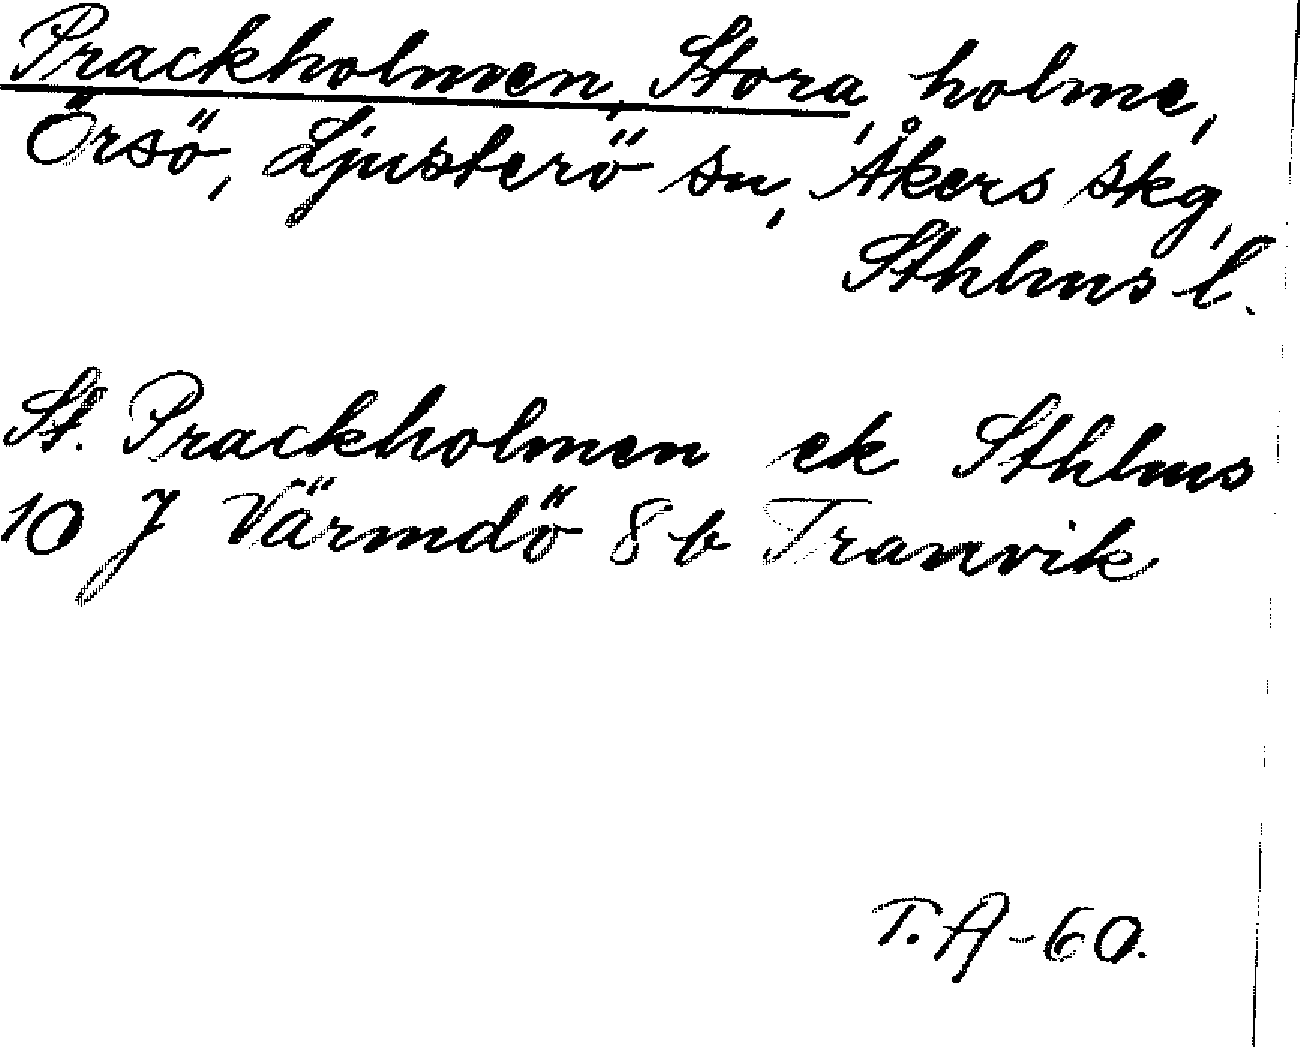 Prackholmen, Stora, holme,
Örsö, Ljusterö sn, Åkers skg,
Sthlms l.
St. Prackholmen ek Sthlms
10 J Värmdö 8 b Tranvik
T. A-60.